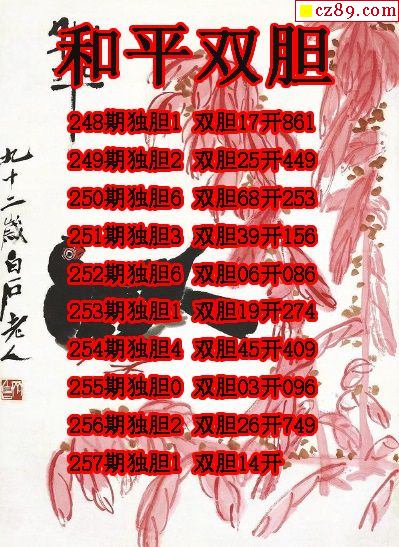 cz89.com
和平双胆
248期独胆1 双胆17开861
249期独胆2 双胆25开449
250期独胆6 双胆68开253
251期独胆3 双胆39开156
252期独胆6 双胆06开086
253期独胆1 双胆19开274
254期独胆4 双胆45开409
255期独胆0 双胆03开096
256期独胆2 双胆26开749
257期独胆1 双胆14开
九十二岁白石老人